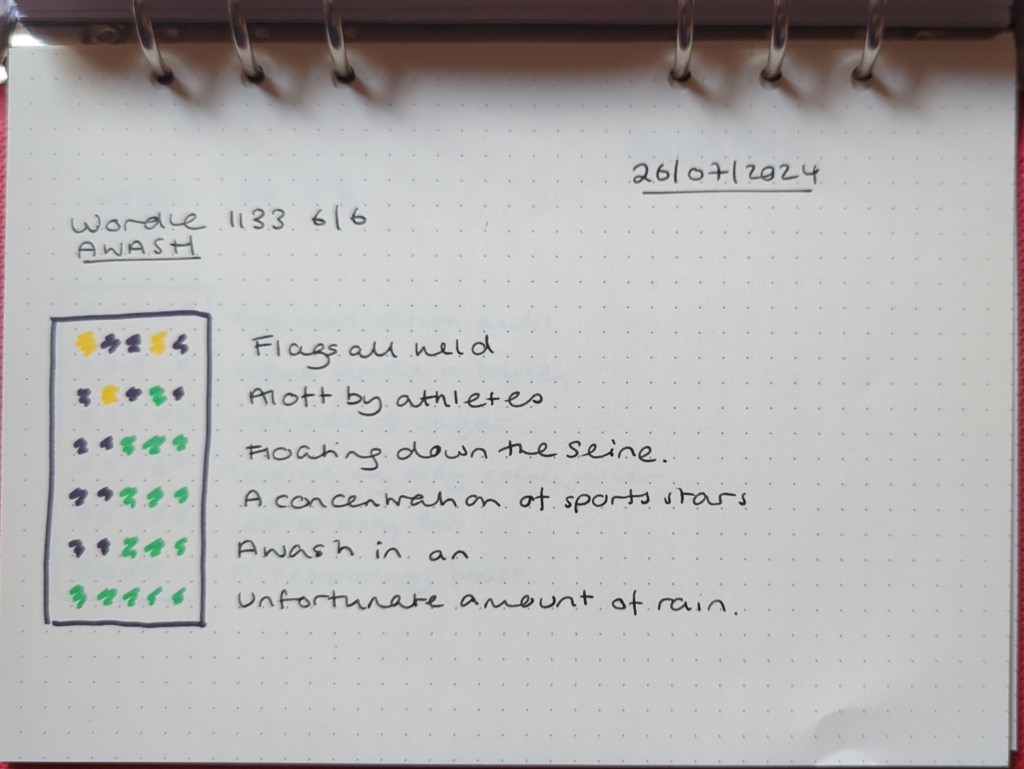 26/07/2024
Wordle 1133 6/6
AWASH
Flags all held
Aloft by athletes
Floating down the Seine.
A concentration of sports stars
Awash in an
Unfortunate amount of rain.